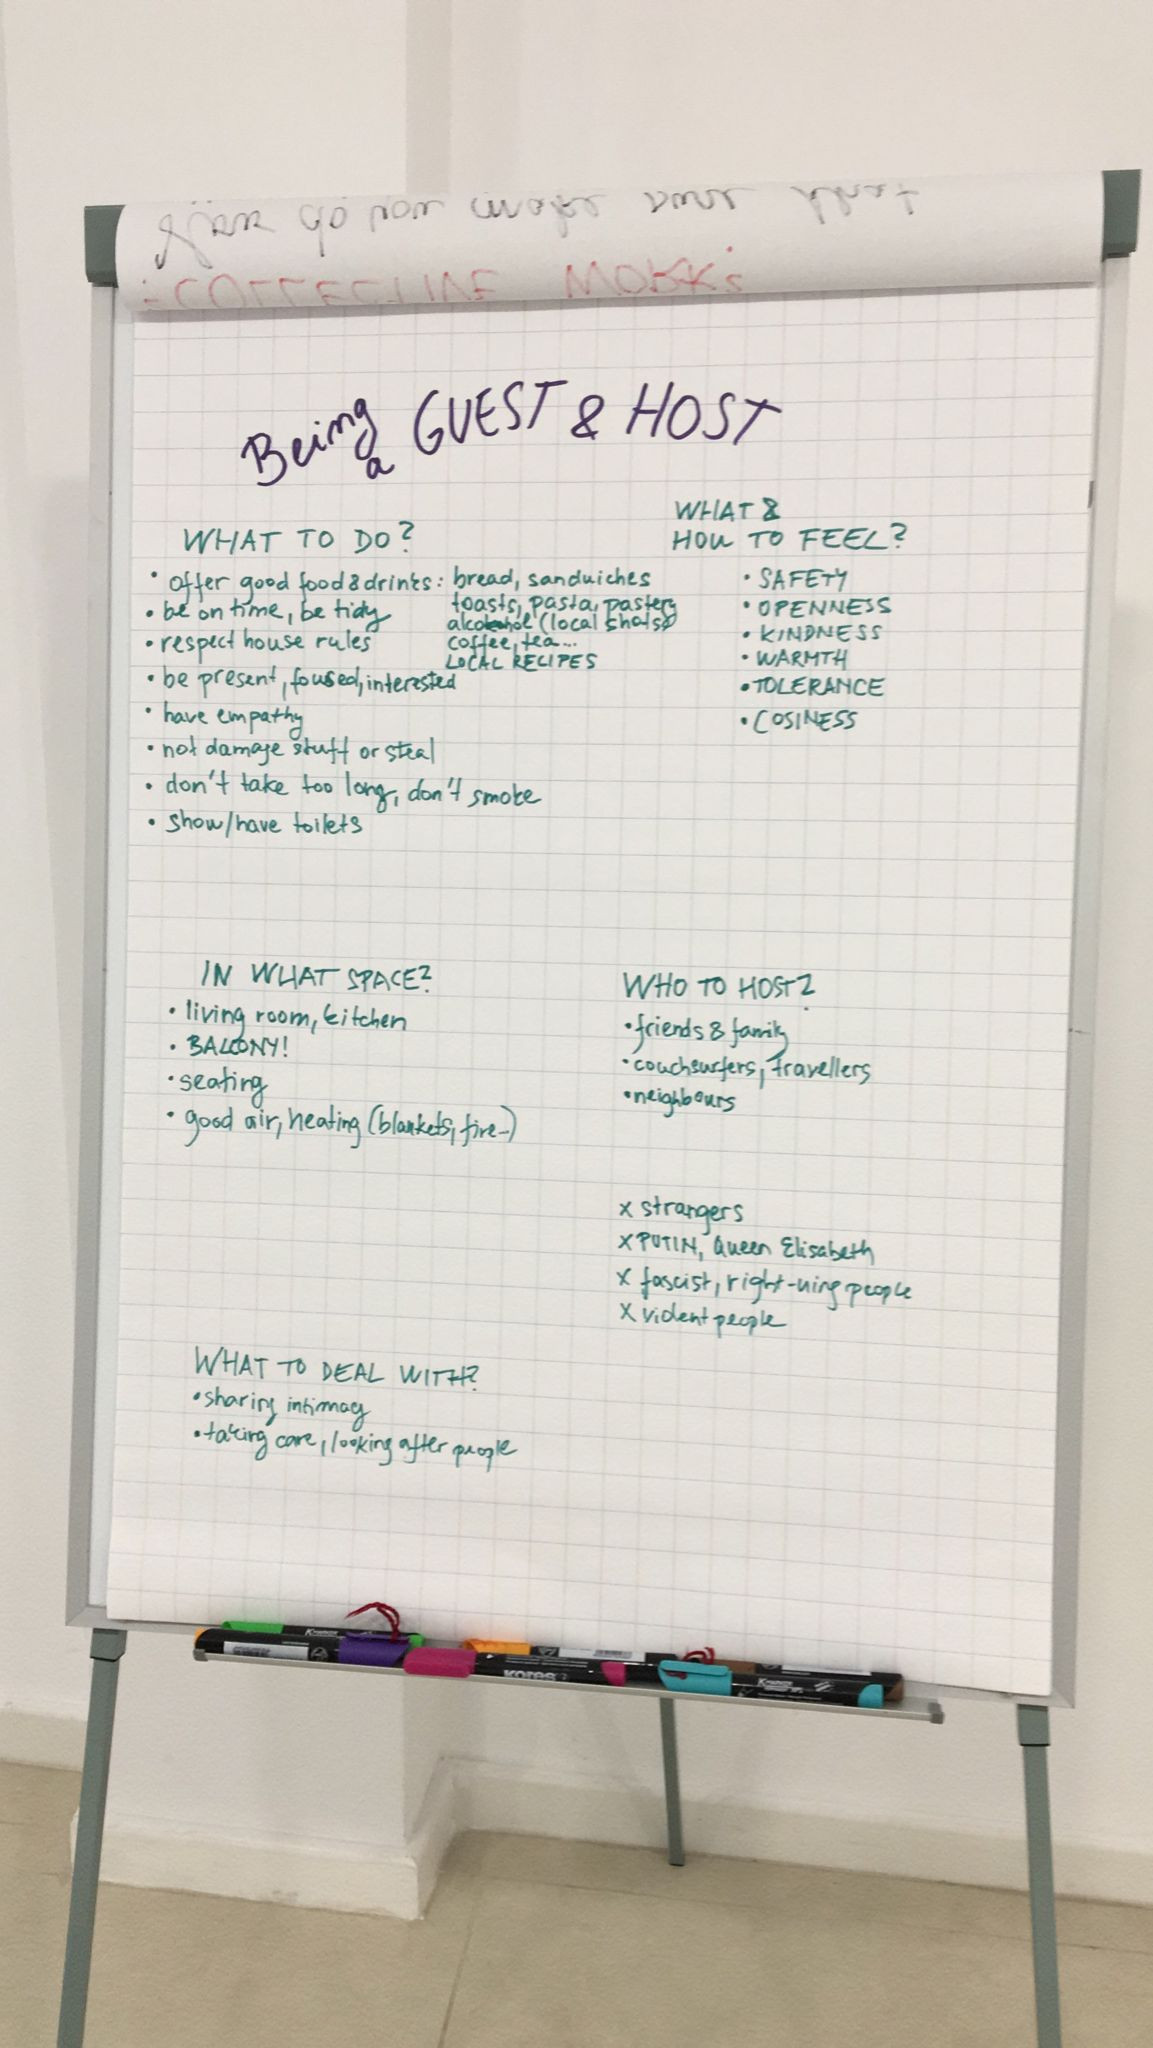 How do you make sure that
COLLECTIVE WORKS
Being a GUEST & HOST
WHAT TO DO?
• offer good food & drinks: bread, sandwiches
toasts, pasta, pastery
alcohol (local shots)
coffee, tea...
LOCAL RECIPES
• be on time, be tidy
• respect house rules
• be present, foused, interested
• have empathy
• not damage stuff or steal
• don't take too long, don't smoke
• show/have toilets
WHAT &
HOW TO FEEL?
• SAFETY
• OPENNESS
• KINDNESS
• WARMTH
• TOLERANCE
• COSINESS
IN WHAT SPACE?
• living room, kitchen
• BALCONY!
• seating
• good air, heating (blankets, fire-)
WHO TO HOST?
• friends & family
• couchsurfers, travellers
• neighbours
x strangers
x PUTIN, Queen Elisabeth
x fascist, right-wing people
x violent people
WHAT TO DEAL WITH?
• sharing intimacy
• taking care, looking after people
kores